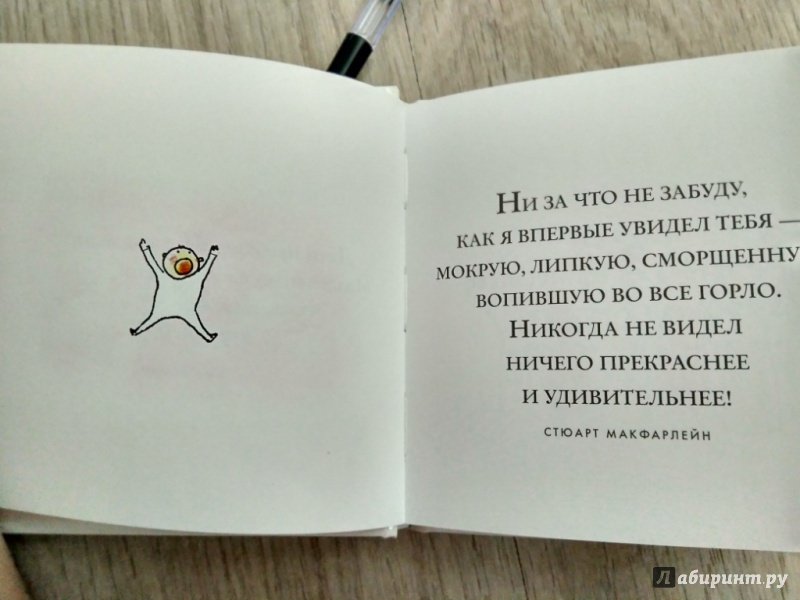 Ни за что не забуду,
как я впервые увидел тебя —
мокрую, липкую, сморщенну
вопившую во все горло.
Никогда не видел
ничего прекраснее
и удивительнее!
СТЮАРТ МАКФАРЛЕЙН
Лабиринт.ру